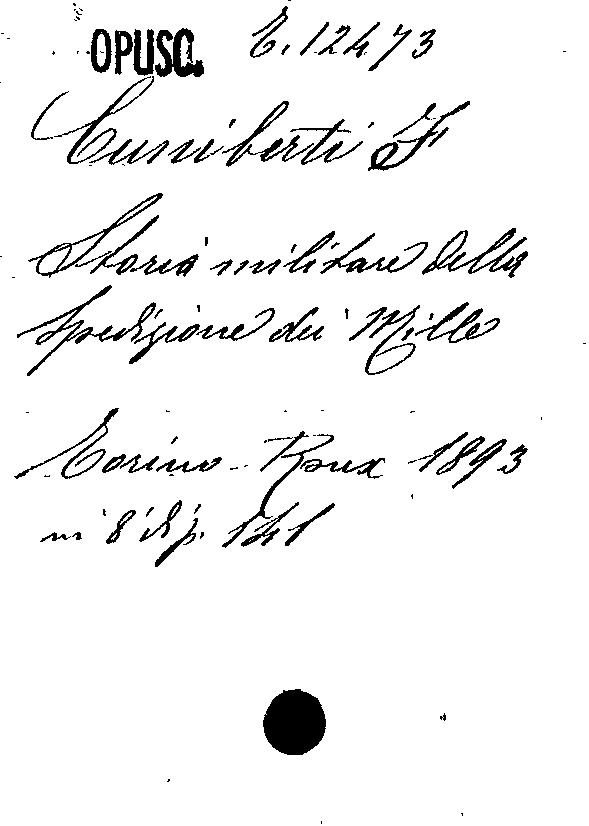 OPUSC. E. 12473
Cuniberti F
Storia militare della
Spedizione dei Mille
Torino - Roux 1893
in 8 di p. 141